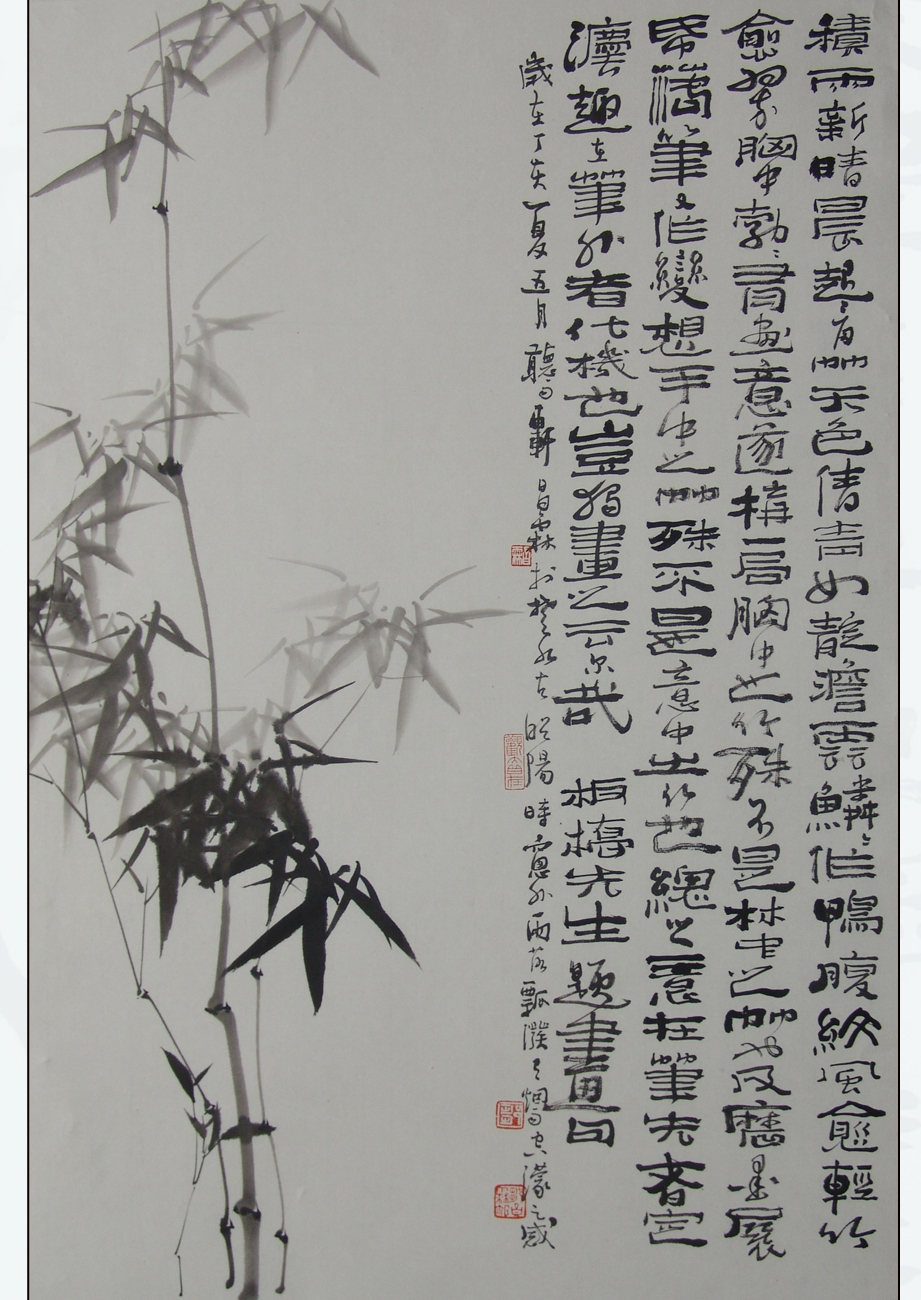 積雨新晴晨起看竹天色倩青如靛澹雲鱗〻作鴨腹紋風愈輕竹
愈翠胸中勃〻有畫意遂構一局胸中之竹殊不是林中之竹也及磨墨展
帋落筆又作變想手中之竹殊不是意中之竹也總之意在筆先者定
灋趣在筆外者化機也豈獨畫之云尔哉 板橋先生題畫句
歲在丁亥夏五月聽雨軒昌霖於楚水古昭陽時窗外雨落瓢潑煙雨空濛之感